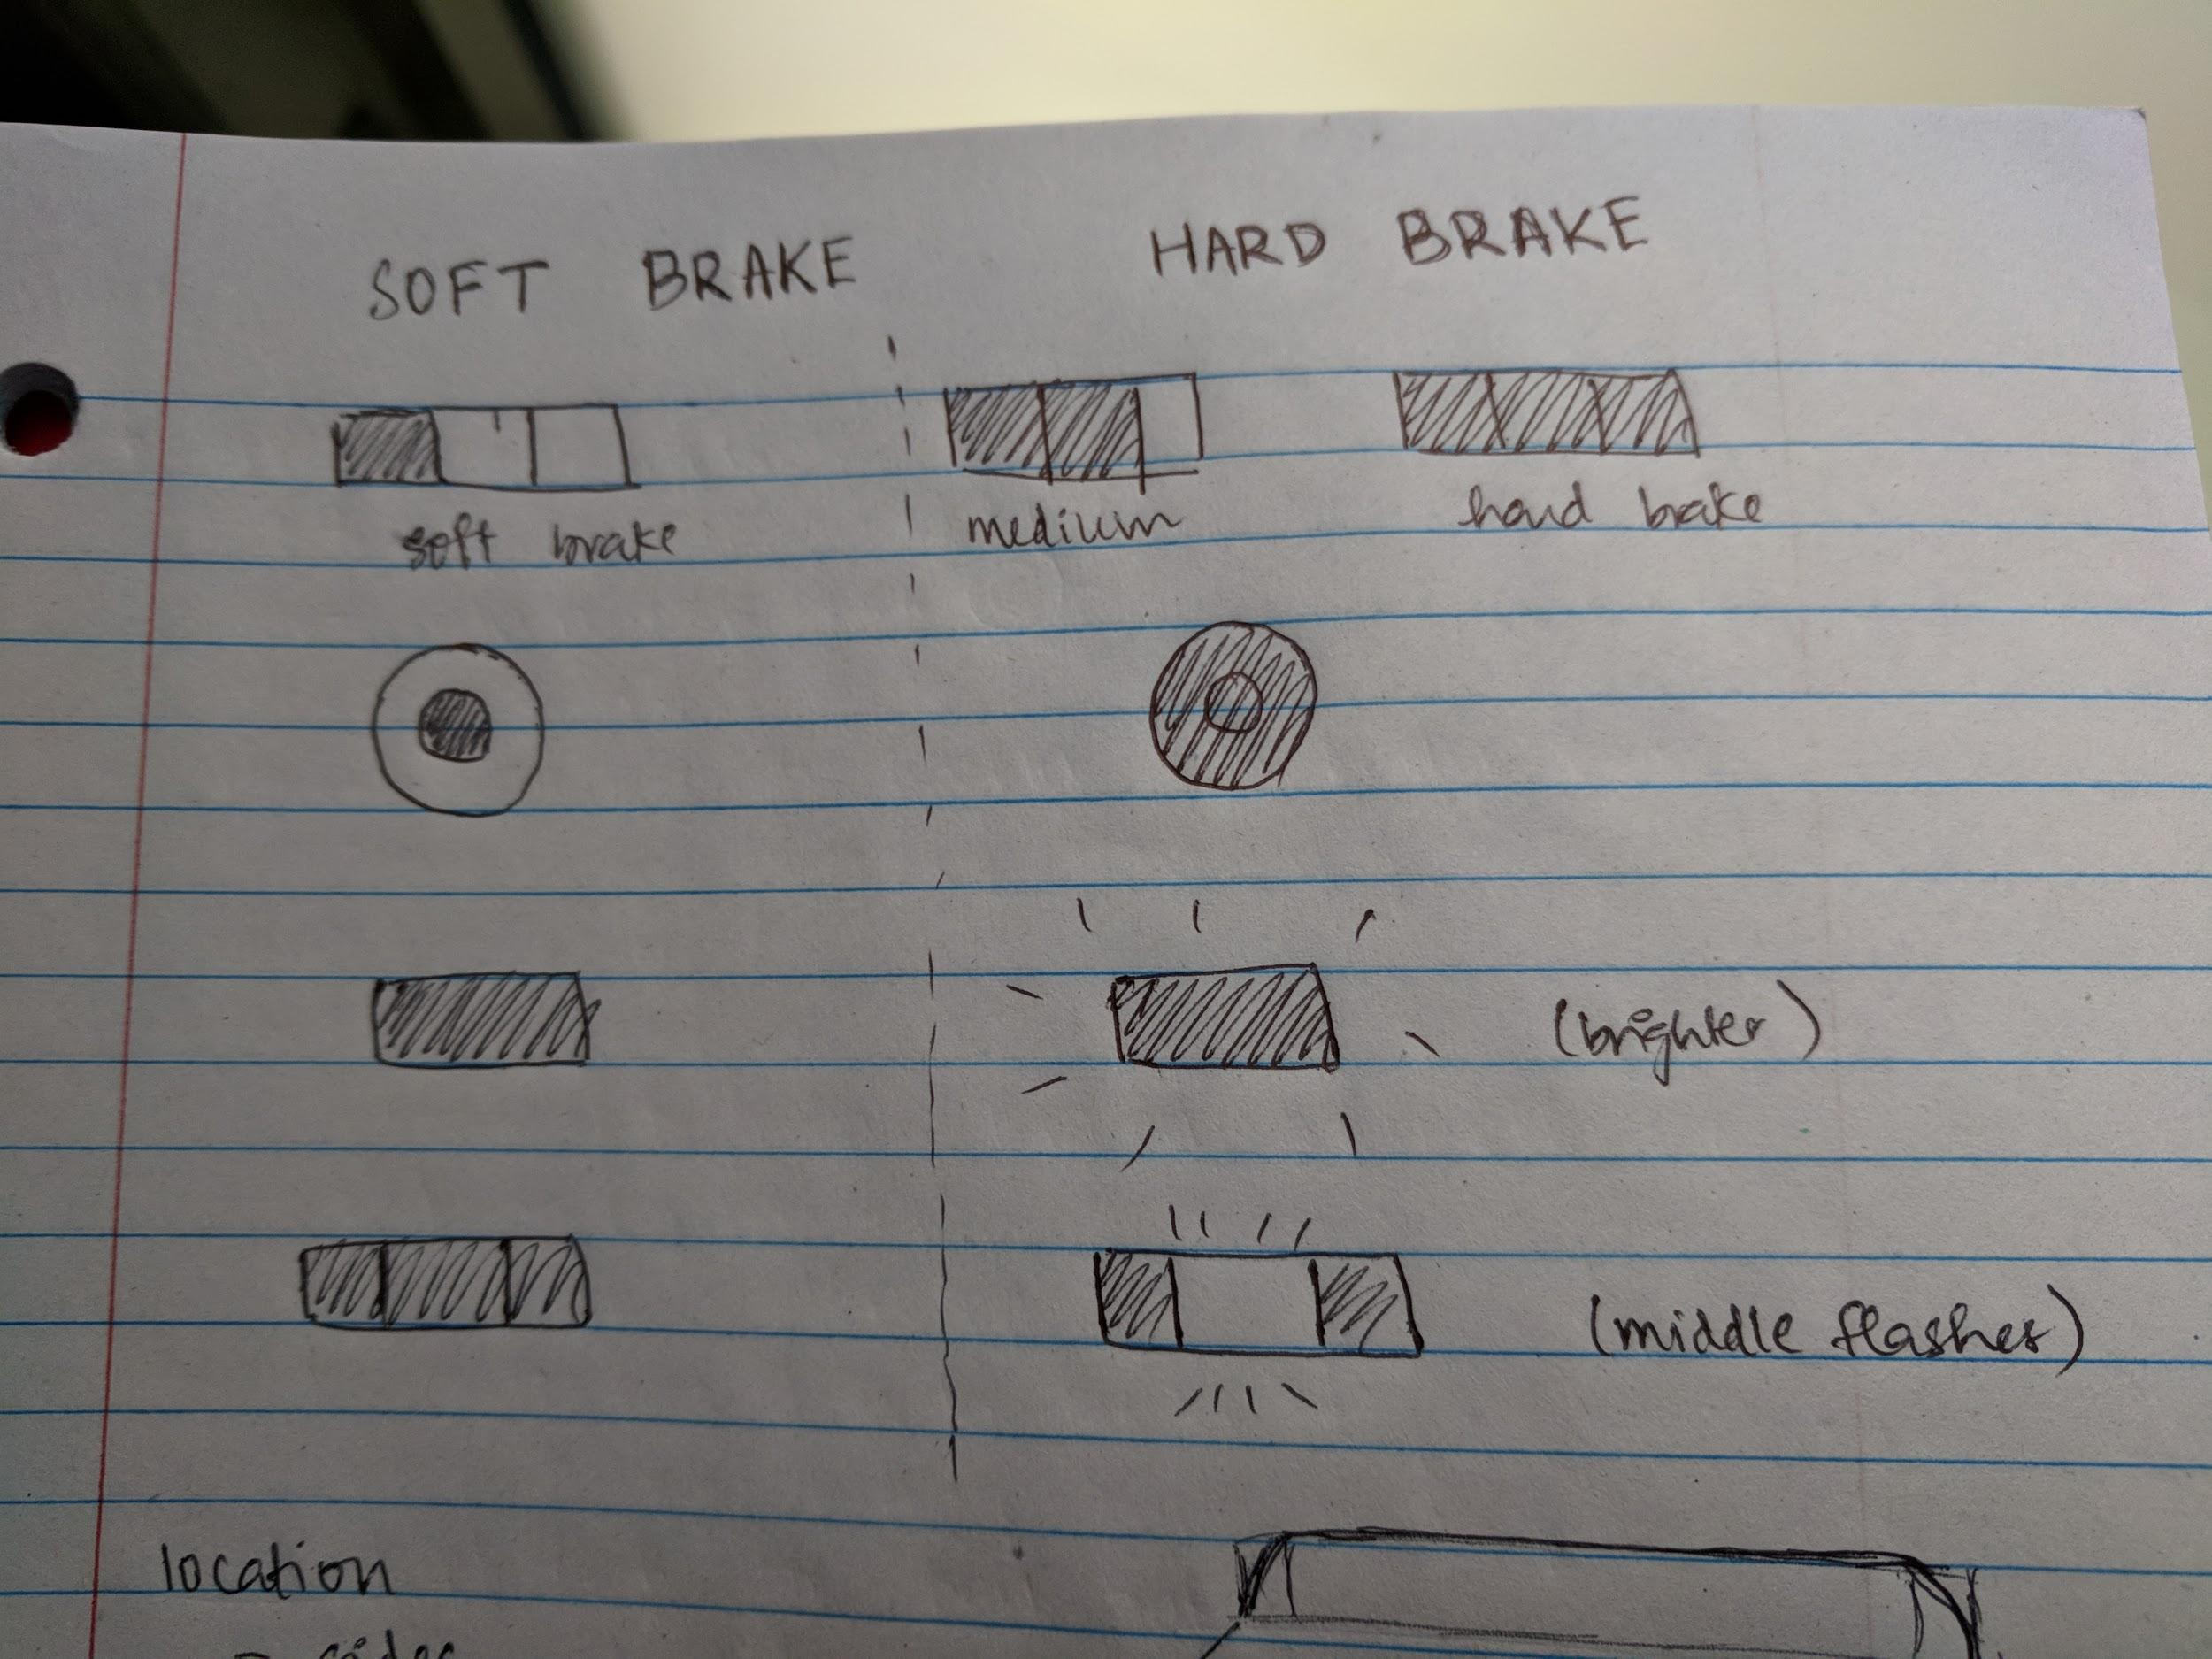 SOFT BRAKE HARD BRAKE
soft brake medium hard brake
(brighter)
(middle flashes)
location
- sides